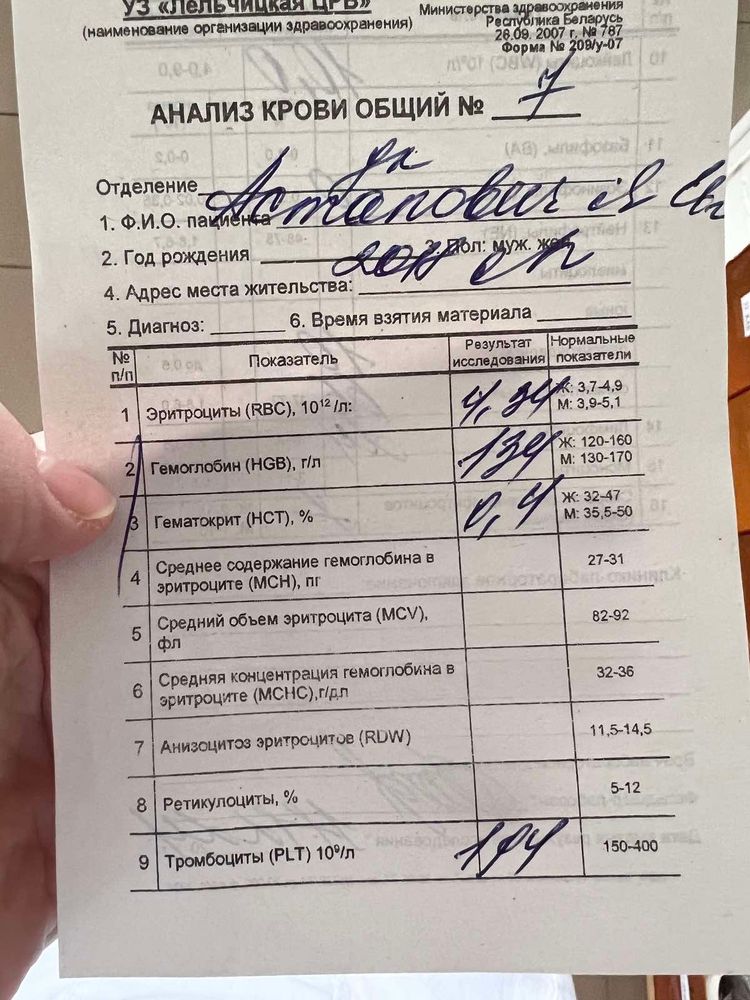 УЗ «Лельчицкая ЦРБ»
(наименование организации здравоохранения)
Министерства здравоохранения
Республика Беларусь
26.09. 2007 г. № 787
Форма № 209/у-07
АНАЛИЗ КРОВИ ОБЩИЙ № 7
Отделение
1. Ф.И.О. пациента Астапович Я
2. Год рождения 3. Пол: муж. жен.
4. Адрес места жительства:
5. Диагноз: 6. Время взятия материала
№ п/п Показатель Результат исследования Нормальные показатели
1 Эритроциты (RBC), 10¹² /л: 4,34 Ж: 3,7-4,9 М: 3,9-5,1
2 Гемоглобин (HGB), г/л 134 Ж: 120-160 М: 130-170
3 Гематокрит (HCT), % 0,4 Ж: 32-47 М: 35,5-50
4 Среднее содержание гемоглобина в эритроците (MCH), пг 27-31
5 Средний объем эритроцита (MCV), фл 82-92
6 Средняя концентрация гемоглобина в эритроците (MCHC),г/дл 32-36
7 Анизоцитоз эритроцитов (RDW) 11,5-14,5
8 Ретикулоциты, % 5-12
9 Тромбоциты (PLT) 10⁹/л 150-400